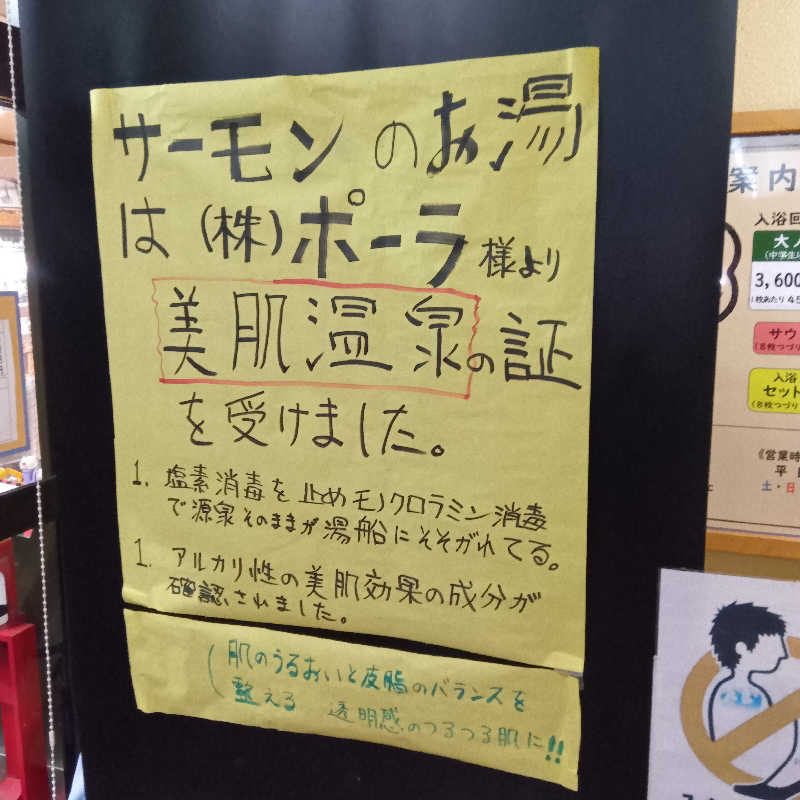 サーモンのお湯
は(株)ポーラ様より
美肌温泉の証
を受けました。
1. 塩素消毒を止めモノクロラミン消毒
で源泉そのままが湯船にそそがれてる。
1. アルカリ性の美肌効果の成分が
確認されました。
(肌のうるおいと皮脂のバランスを
整える 透明感のつるつる肌に!!
案内
入浴回
大人
(中学生以
3,600
1枚あたり45
サウ
(8枚つづり
入浴
セット
(8枚つづり
《営業時
平
土・日